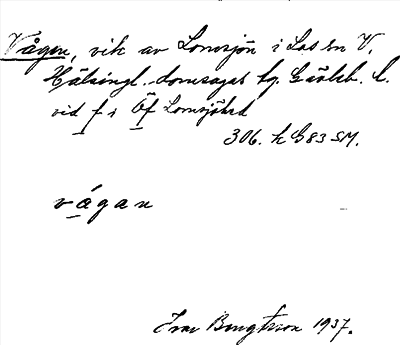 Vågen, vik av Lomsjön i Los sn V.
Hälsingl. domsagas tg. Gävleb. l.
vid f i Öf Lomsjöhed
306. h G83 SM.
vágan
Ivar Bengtsson 1937.